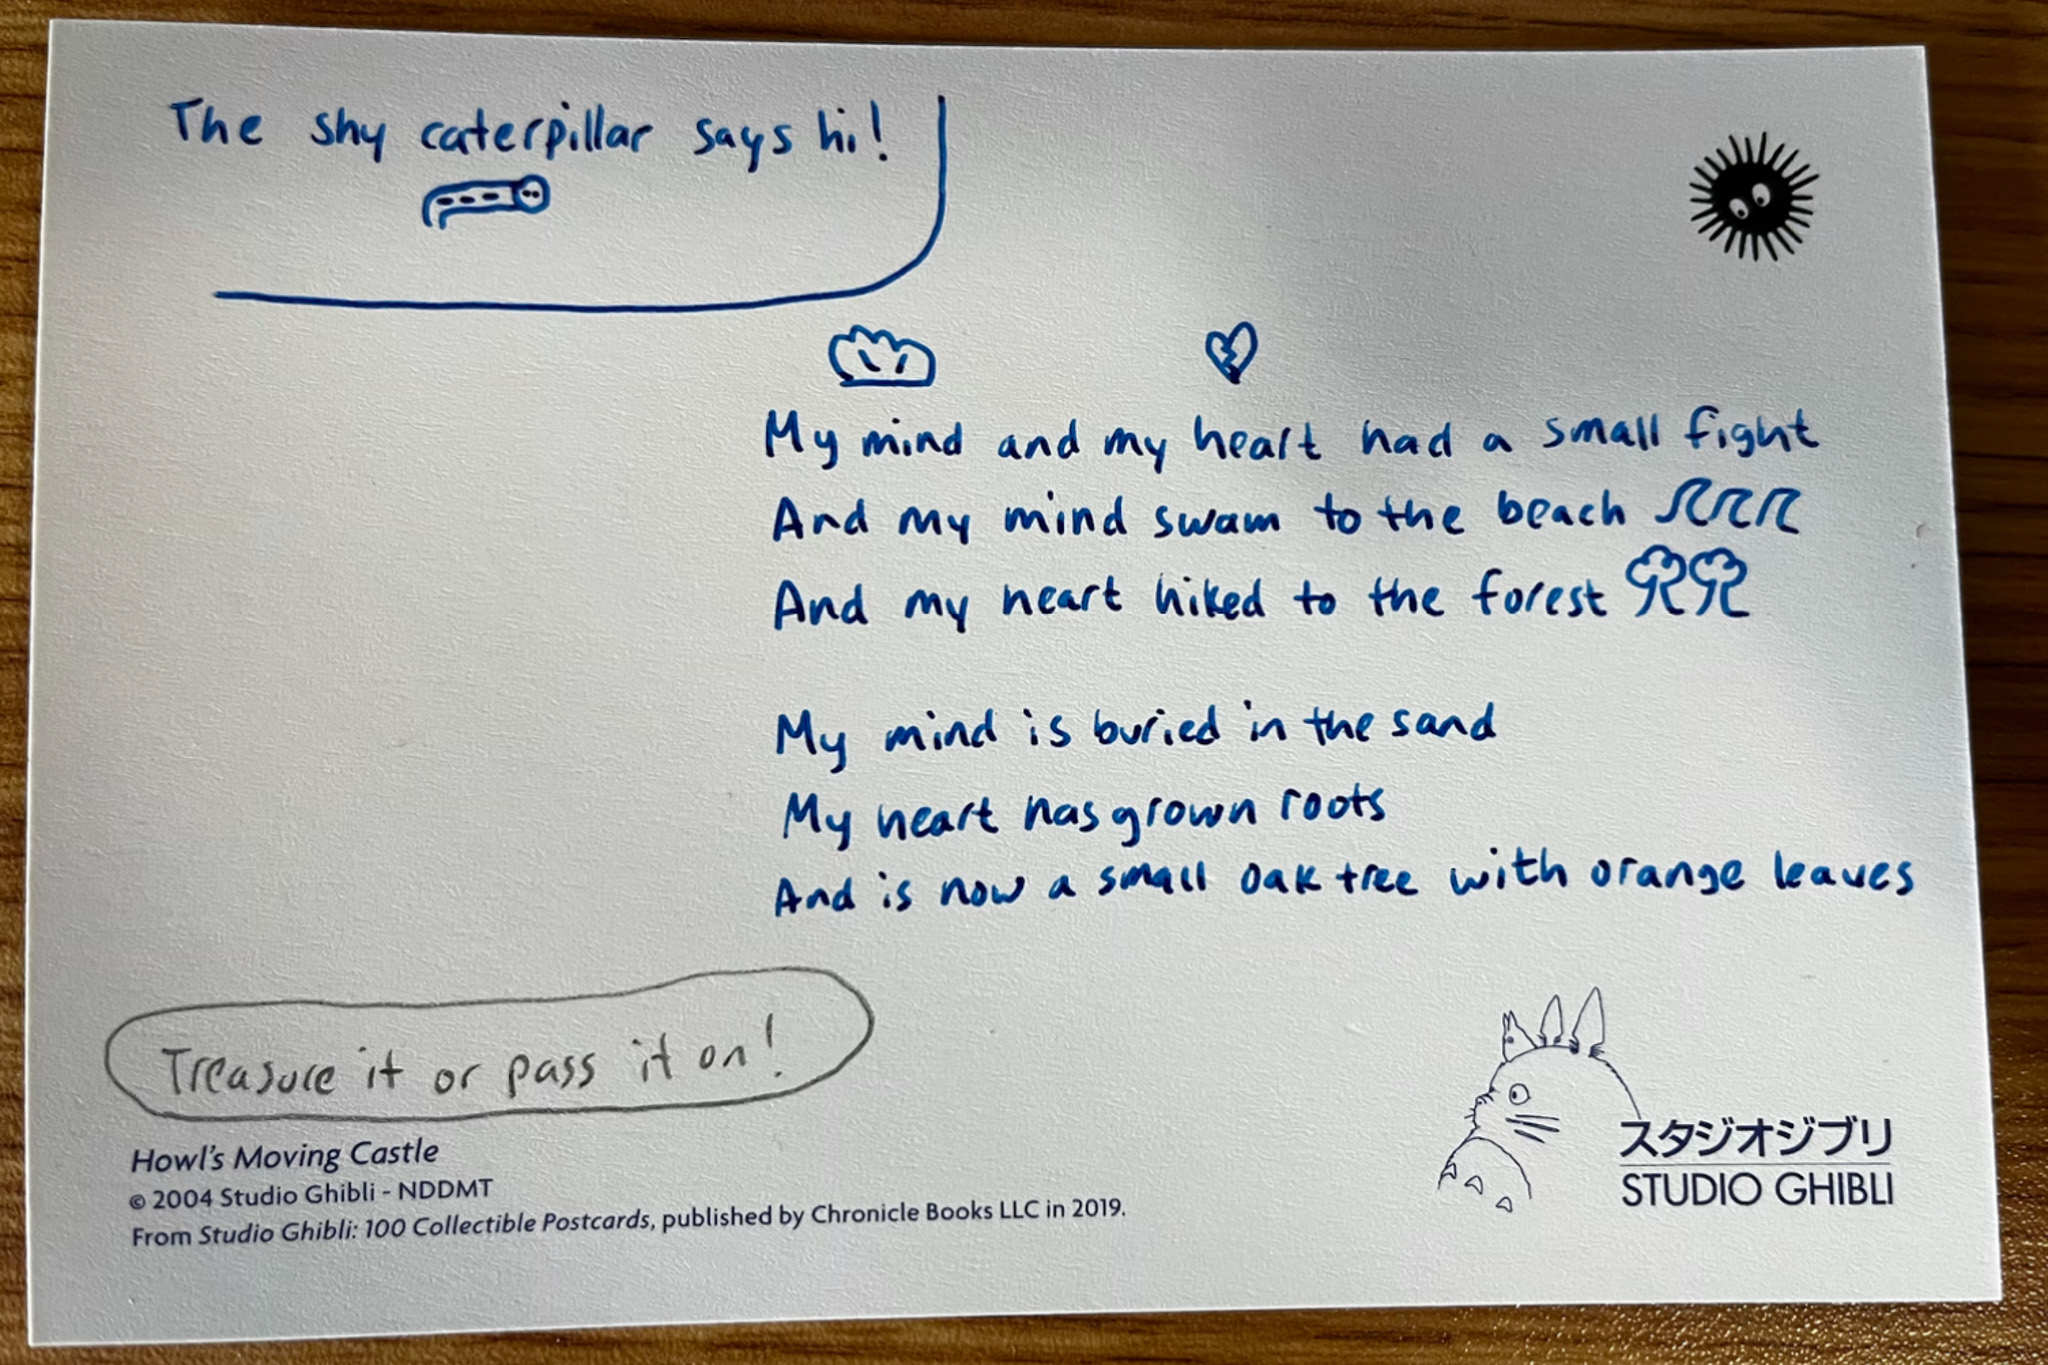 The shy caterpillar says hi!
My mind and my heart had a small fight
And my mind swam to the beach
And my heart hiked to the forest
My mind is buried in the sand
My heart has grown roots
And is now a small oak tree with orange leaves
Treasure it or pass it on!
Howl's Moving Castle
© 2004 Studio Ghibli - NDDMT
From Studio Ghibli: 100 Collectible Postcards, published by Chronicle Books LLC in 2019.
スタジオジブリ
STUDIO GHIBLI